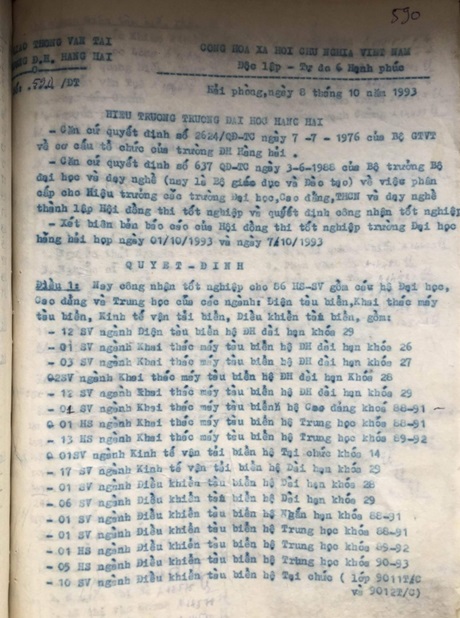 590
GIAO THONG VAN TAI
CỘNG HÒA XA HOI CHU NGHIA VIET NAM
Đ.H. HANG HAI
Độc lập - Tự do 6 Hạnh phúc
/DT
Hải phòng, ngày 8 tháng 10 năm 1993
HIEU TRUONG TRUONG DAI HOC HANG HAI
- Căn cứ quyết định số 2624/QĐ-TC ngày 7 -7 - 1976 của Bộ GTVT
về cơ cấu tổ chức của trường ĐH Hàng hải .
- Căn cứ quyết định số 637 QĐ-TC ngày 3-6-1988 của Bộ trưởng Bộ
đại học và dạy nghề (nay là Bộ giáo dục và Đào tạo) về việc phân
cấp cho Hiệu trưởng các trường Đại học,Cao đẳng,THCN và dạy nghề
thành lập Hội đồng thi tốt nghiệp và quyết định công nhận tốt nghiệp
- Xét biên bản báo cáo của Hội đồng thi tốt nghiệp trường Đại học
hàng hải họp ngày 01/10/1993 và ngày 7/10/1993
QUYET-DINH
Điều 1: Nay công nhận tốt nghiệp cho 86 HS-SV gồm các hệ Đại học,
Cao đẳng và Trung học của các ngành: Điện tàu biển,Khai thác máy
tàu biển, Kinh tế vận tải biển, Điều khiển tàu biển, gồm:
- 12 SV ngành Điện tàu biển hệ ĐH dài hạn khóa 29
- 01 SV ngành Khai thác máy tàu biển hệ ĐH dài hạn khóa 26
- 03 SV ngành Khai thác máy tàu biển hệ ĐH dài hạn khóa 27
02SV ngành Khai thác máy tàu biển hệ ĐH dài hạn Khóa 28
- 12 SV ngành Khai thác máy tàu biển hệ ĐH dài hạn khóa 29
- 01 SV ngành Khai thác máy tàu biển hệ Cao đẳng khóa 88-91
01 HS ngành Khai thác máy tàu biển hệ Trung học khóa 88-91
- 13 HS ngành Khai thác máy tàu biển hệ Trung học khóa 89-92
01SV ngành Kinh tế vận tải biển hệ Tại chức khóa 14
- 17 SV ngành Kinh tế vận tải biển hệ Dài hạn khóa 29
- 01 SV ngành Điều khiển tàu biển hệ Dài hạn khóa 28
- 06 SV ngành Điều khiển tàu biển hệ Dài hạn khóa 29
- 01 SV ngành Điều khiển tàu biển hệ Ngắn hạn khóa 88-91
- 01 SV ngành Điều khiển tàu biển hệ Trung học khóa 88-91
- 01 HS ngành Điều khiển tàu biển hệ Trung học khóa 89-92
- 05 HS ngành Điều khiển tàu biển hệ Trung học khóa 90-93
- 10 SV ngành Điều khiển tàu biển hệ Tại chức ( lớp 9011T/C
và 9012T/C)